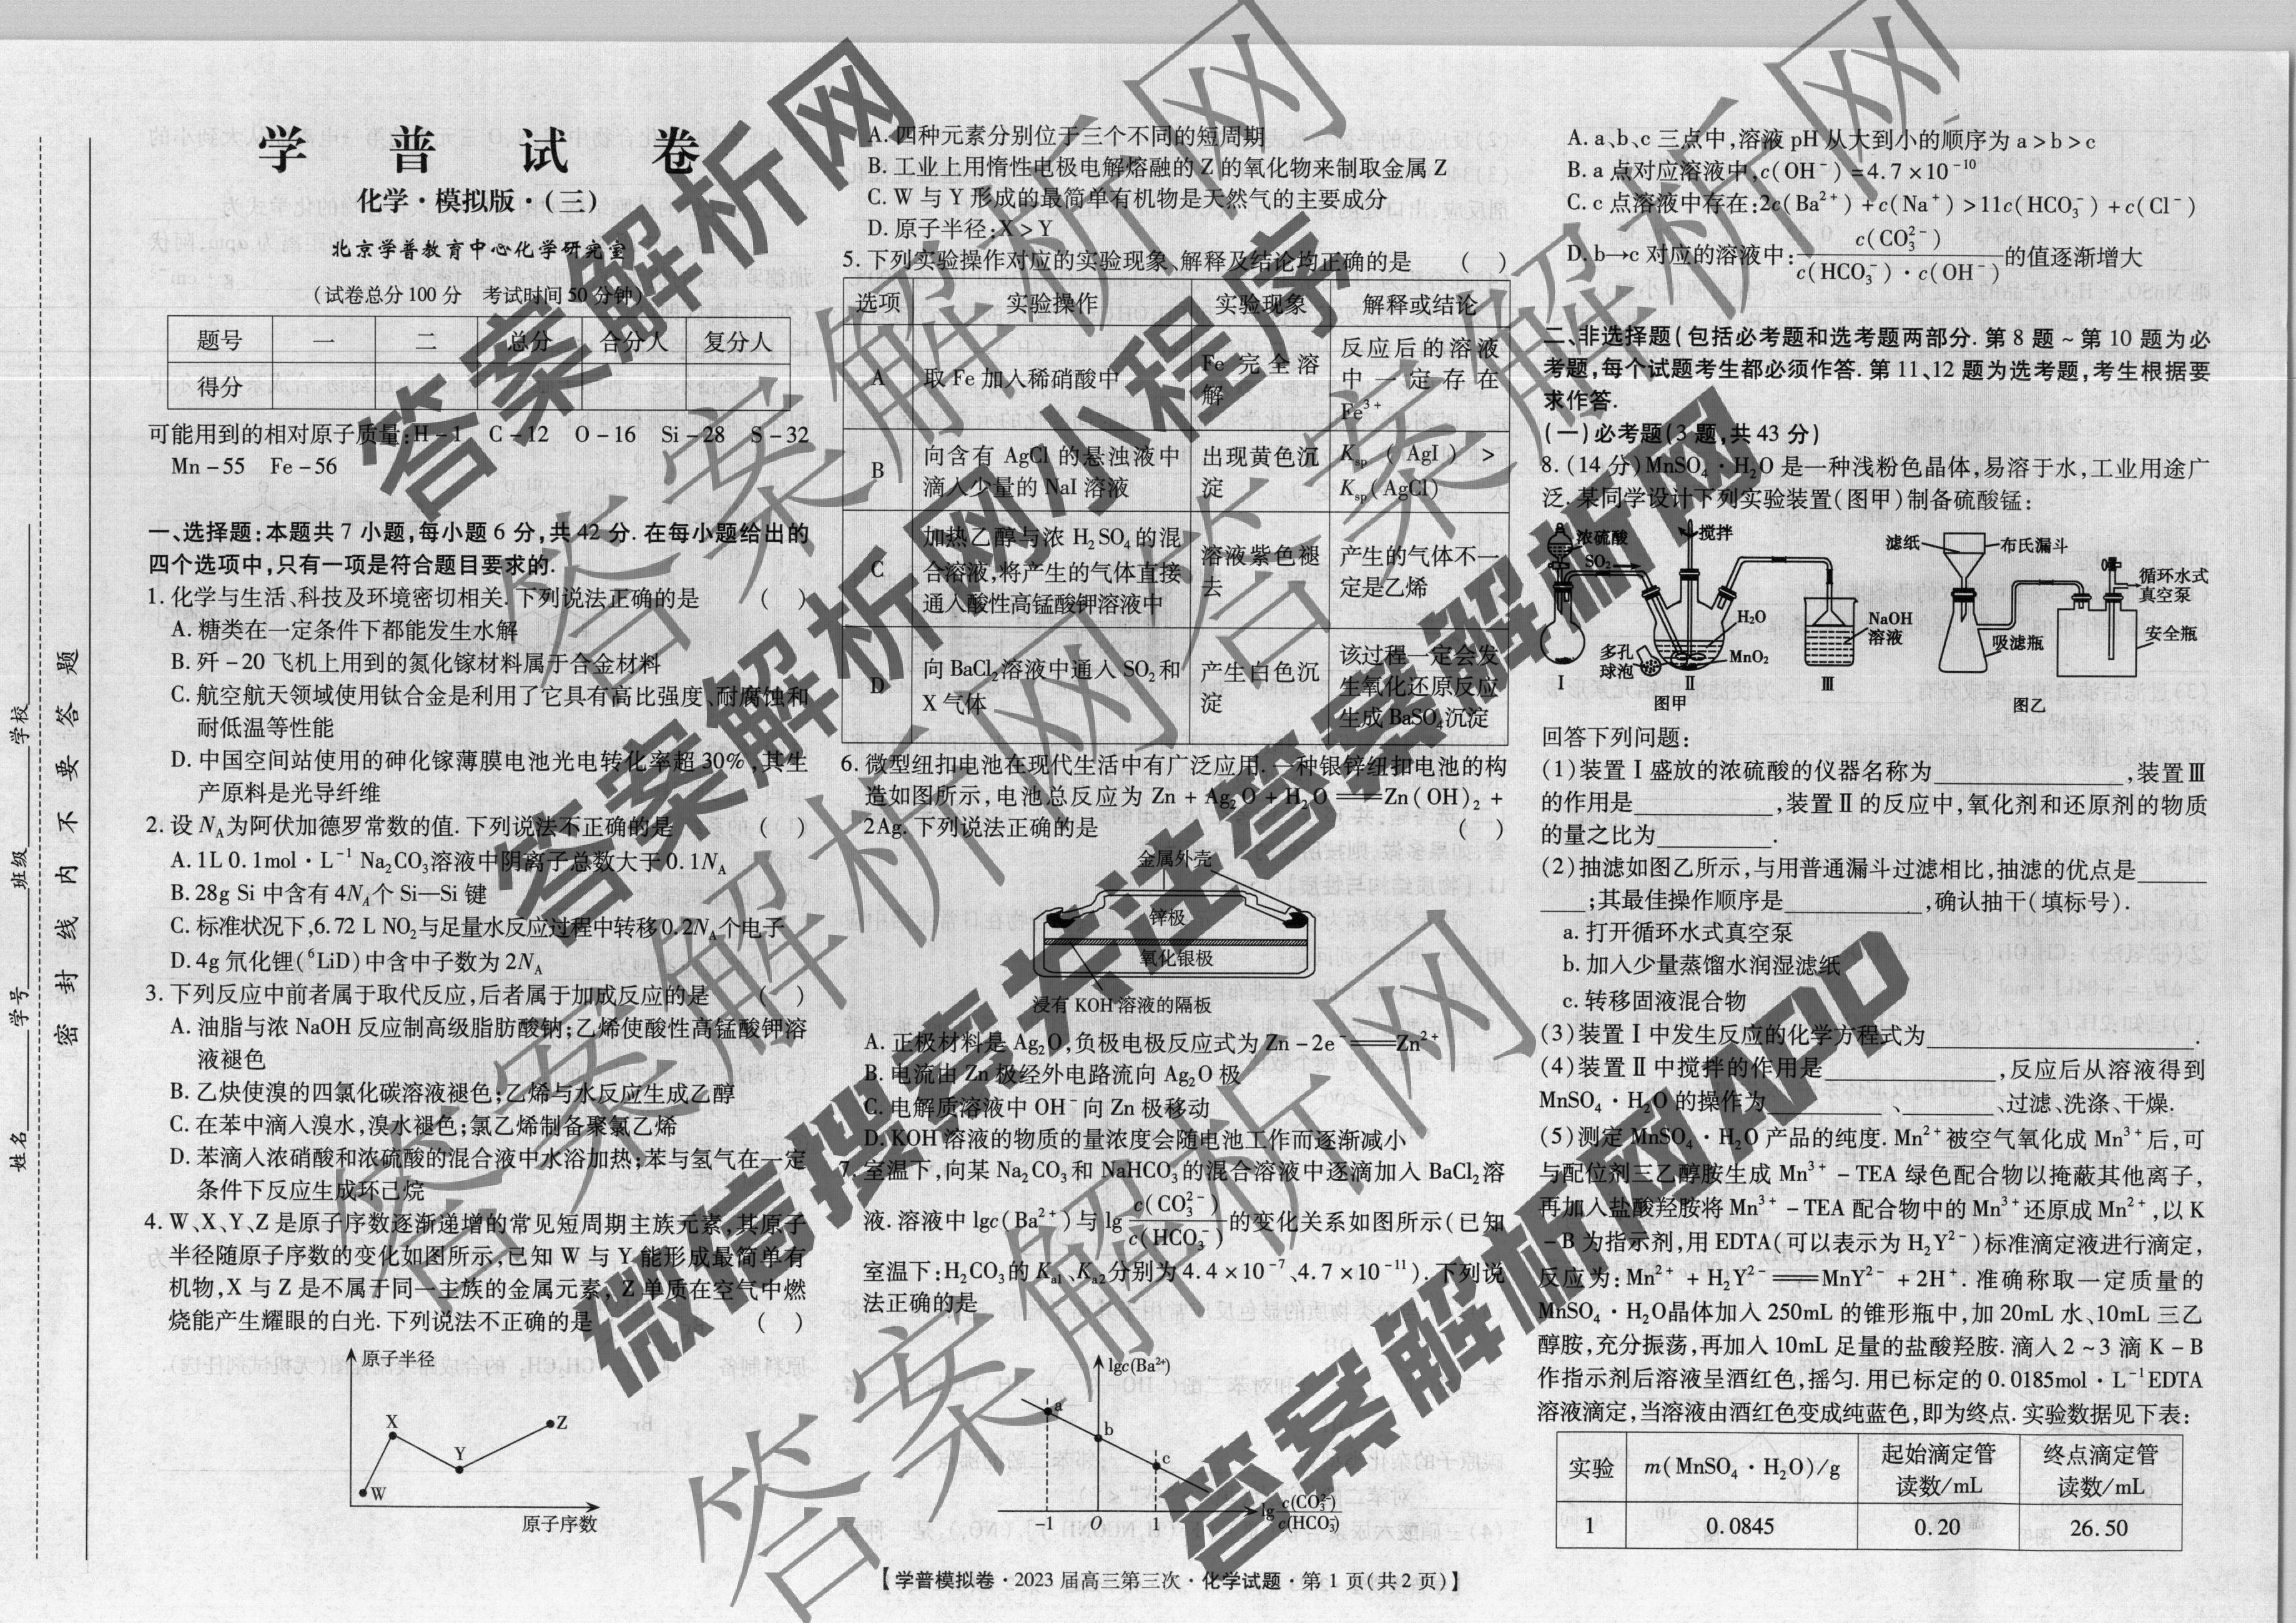 学普试卷
化学·模拟版·(三)
北京学普教育中心化学研究室
(试卷总分100分 考试时间50分钟)
题号 一 二 总分 合分人 复分人
得分
可能用到的相对原子质量:H-1 C-12 O-16 Si-28 S-32
Mn-55 Fe-56
一、选择题:本题共7小题,每小题6分,共42分.在每小题给出的
四个选项中,只有一项是符合题目要求的.
1.化学与生活、科技及环境密切相关.下列说法正确的是 ( )
A.糖类在一定条件下都能发生水解
B.歼-20飞机上用到的氮化镓材料属于合金材料
C.航空航天领域使用钛合金是利用了它具有高比强度、耐腐蚀和
耐低温等性能
D.中国空间站使用的砷化镓薄膜电池光电转化率超30%,其生
产原料是光导纤维
2.设N_A为阿伏加德罗常数的值.下列说法不正确的是 ( )
A.1L 0.1mol·L⁻¹ Na₂CO₃溶液中阴离子总数大于0.1N_A
B.28g Si中含有4N_A个Si—Si键
C.标准状况下,6.72 L NO₂与足量水反应过程中转移0.2N_A个电子
D.4g氘化锂(⁶LiD)中含中子数为2N_A
3.下列反应中前者属于取代反应,后者属于加成反应的是 ( )
A.油脂与浓NaOH反应制高级脂肪酸钠;乙烯使酸性高锰酸钾溶
液褪色
B.乙炔使溴的四氯化碳溶液褪色;乙烯与水反应生成乙醇
C.在苯中滴入溴水,溴水褪色;氯乙烯制备聚氯乙烯
D.苯滴入浓硝酸和浓硫酸的混合液中水浴加热;苯与氢气在一定
条件下反应生成环己烷
4.W、X、Y、Z是原子序数逐渐递增的常见短周期主族元素,其原子
半径随原子序数的变化如图所示,已知W与Y能形成最简单有
机物,X与Z是不属于同一主族的金属元素,Z单质在空气中燃
烧能产生耀眼的白光.下列说法不正确的是 ( )
原子半径
X
Z
Y
W
原子序数
A.四种元素分别位于三个不同的短周期
B.工业上用惰性电极电解熔融的Z的氧化物来制取金属Z
C.W与Y形成的最简单有机物是天然气的主要成分
D.原子半径:X>Y
5.下列实验操作对应的实验现象、解释及结论均正确的是 ( )
选项 实验操作 实验现象 解释或结论
A 取Fe加入稀硝酸中 Fe完全溶解 反应后的溶液中一定存在Fe³⁺
B 向含有AgCl的悬浊液中滴入少量的NaI溶液 出现黄色沉淀 K_sp(AgI)>K_sp(AgCl)
C 加热乙醇与浓H₂SO₄的混合溶液,将产生的气体直接通入酸性高锰酸钾溶液中 溶液紫色褪去 产生的气体不一定是乙烯
D 向BaCl₂溶液中通入SO₂和X气体 产生白色沉淀 该过程一定会发生氧化还原反应生成BaSO₄沉淀
6.微型纽扣电池在现代生活中有广泛应用.一种银锌纽扣电池的构
造如图所示,电池总反应为Zn+Ag₂O+H₂O══Zn(OH)₂+
2Ag.下列说法正确的是 ( )
金属外壳
锌极
氧化银极
浸有KOH溶液的隔板
A.正极材料是Ag₂O,负极电极反应式为Zn-2e⁻══Zn²⁺
B.电流由Zn极经外电路流向Ag₂O极
C.电解质溶液中OH⁻向Zn极移动
D.KOH溶液的物质的量浓度会随电池工作而逐渐减小
7.室温下,向某Na₂CO₃和NaHCO₃的混合溶液中逐滴加入BaCl₂溶
液.溶液中lgc(Ba²⁺)与lg c(CO₃²⁻)/c(HCO₃⁻)的变化关系如图所示(已知
室温下:H₂CO₃的K_a1、K_a2分别为4.4×10⁻⁷、4.7×10⁻¹¹).下列说
法正确的是
lgc(Ba²⁺)
a
b
c
-1 O 1 lg c(CO₃²⁻)/c(HCO₃⁻)
A.a、b、c三点中,溶液pH从大到小的顺序为a>b>c
B.a点对应溶液中,c(OH⁻)=4.7×10⁻¹⁰
C.c点溶液中存在:2c(Ba²⁺)+c(Na⁺)>11c(HCO₃⁻)+c(Cl⁻)
D.b→c对应的溶液中:c(CO₃²⁻)/c(HCO₃⁻)·c(OH⁻)的值逐渐增大
二、非选择题(包括必考题和选考题两部分.第8题~第10题为必
考题,每个试题考生都必须作答.第11、12题为选考题,考生根据要
求作答.
(一)必考题(3题,共43分)
8.(14分)MnSO₄·H₂O是一种浅粉色晶体,易溶于水,工业用途广
泛.某同学设计下列实验装置(图甲)制备硫酸锰:
浓硫酸
SO₂
搅拌
H₂O
MnO₂
多孔球泡
NaOH溶液
Ⅰ Ⅱ Ⅲ
图甲
滤纸
布氏漏斗
循环水式真空泵
吸滤瓶
安全瓶
图乙
回答下列问题:
(1)装置Ⅰ盛放的浓硫酸的仪器名称为________,装置Ⅲ
的作用是________,装置Ⅱ的反应中,氧化剂和还原剂的物质
的量之比为________.
(2)抽滤如图乙所示,与用普通漏斗过滤相比,抽滤的优点是____
____;其最佳操作顺序是________,确认抽干(填标号).
a.打开循环水式真空泵
b.加入少量蒸馏水润湿滤纸
c.转移固液混合物
(3)装置Ⅰ中发生反应的化学方程式为________.
(4)装置Ⅱ中搅拌的作用是________,反应后从溶液得到
MnSO₄·H₂O的操作为________、________、过滤、洗涤、干燥.
(5)测定MnSO₄·H₂O产品的纯度.Mn²⁺被空气氧化成Mn³⁺后,可
与配位剂三乙醇胺生成Mn³⁺-TEA绿色配合物以掩蔽其他离子,
再加入盐酸羟胺将Mn³⁺-TEA配合物中的Mn³⁺还原成Mn²⁺,以K
-B为指示剂,用EDTA(可以表示为H₂Y²⁻)标准滴定液进行滴定,
反应为:Mn²⁺+H₂Y²⁻══MnY²⁻+2H⁺.准确称取一定质量的
MnSO₄·H₂O晶体加入250mL的锥形瓶中,加20mL水、10mL三乙
醇胺,充分振荡,再加入10mL足量的盐酸羟胺.滴入2~3滴K-B
作指示剂后溶液呈酒红色,摇匀.用已标定的0.0185mol·L⁻¹EDTA
溶液滴定,当溶液由酒红色变成纯蓝色,即为终点.实验数据见下表:
实验 m(MnSO₄·H₂O)/g 起始滴定管读数/mL 终点滴定管读数/mL
1 0.0845 0.20 26.50
【学普模拟卷·2023届高三第三次·化学试题·第1页(共2页)】
密封线内不要答题
姓名 学号 班级 学校
答案解析网
答案解析网小程序
微信搜索关注答案解析网
答案解析网APP
答案解析网
答案解析网
答案解析网
答案解析网